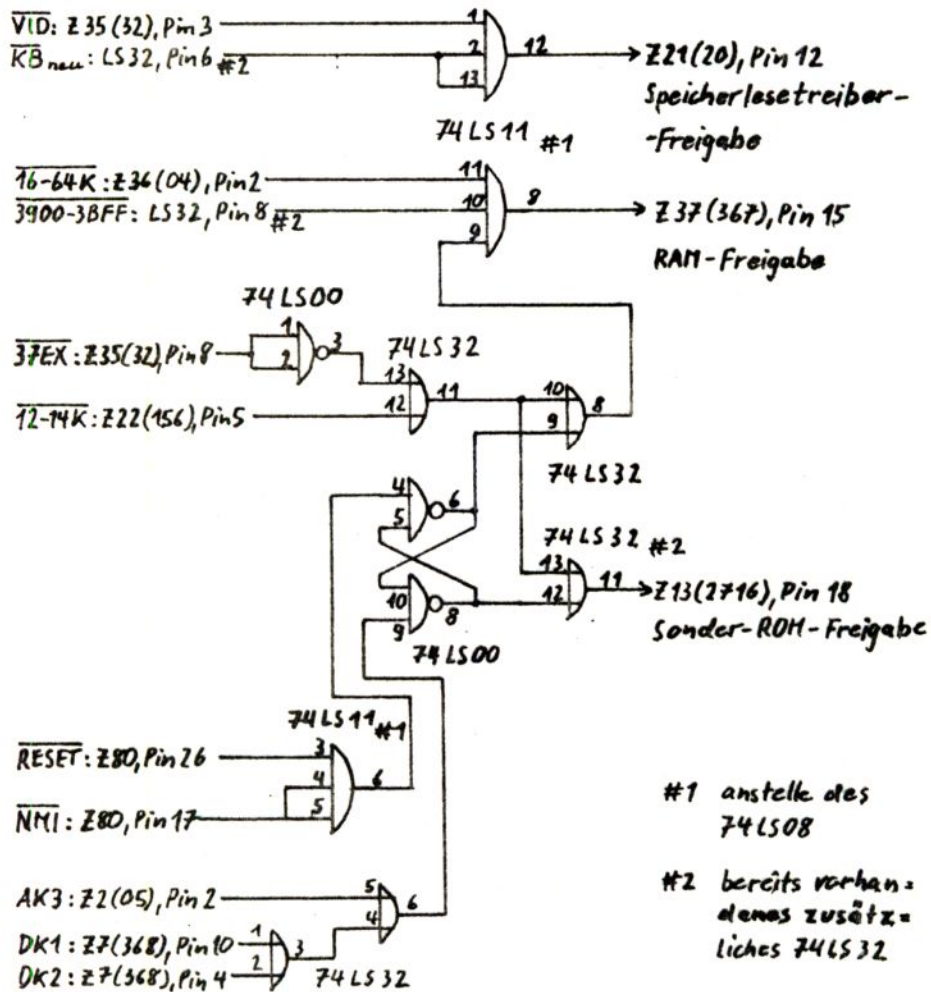 VID: Z35(32), Pin 3
KB neu: LS32, Pin 6 #2
1
2
13
12
Z21(20), Pin 12
Speicherlesetreiber-
-Freigabe
74LS11 #1
16-64K: Z36(04), Pin 2
3900-3BFF: LS32, Pin 8 #2
11
10
9
8
Z37(367), Pin 15
RAM-Freigabe
74LS00
37EX: Z35(32), Pin 8
1
2
3
74LS32
12-14K: Z22(156), Pin 5
13
12
11
10
9
8
74LS32
4
5
6
74LS32 #2
13
12
11
Z13(2716), Pin 18
Sonder-ROM-Freigabe
10
9
8
74LS00
74LS11 #1
RESET: Z80, Pin 26
NMI: Z80, Pin 17
3
4
5
6
#1 anstelle des
74LS08
AK3: Z2(05), Pin 2
DK1: Z7(368), Pin 10
DK2: Z7(368), Pin 4
1
2
3
5
4
6
74LS32
#2 bereits vorhan=
denes zusätz=
liches 74LS32